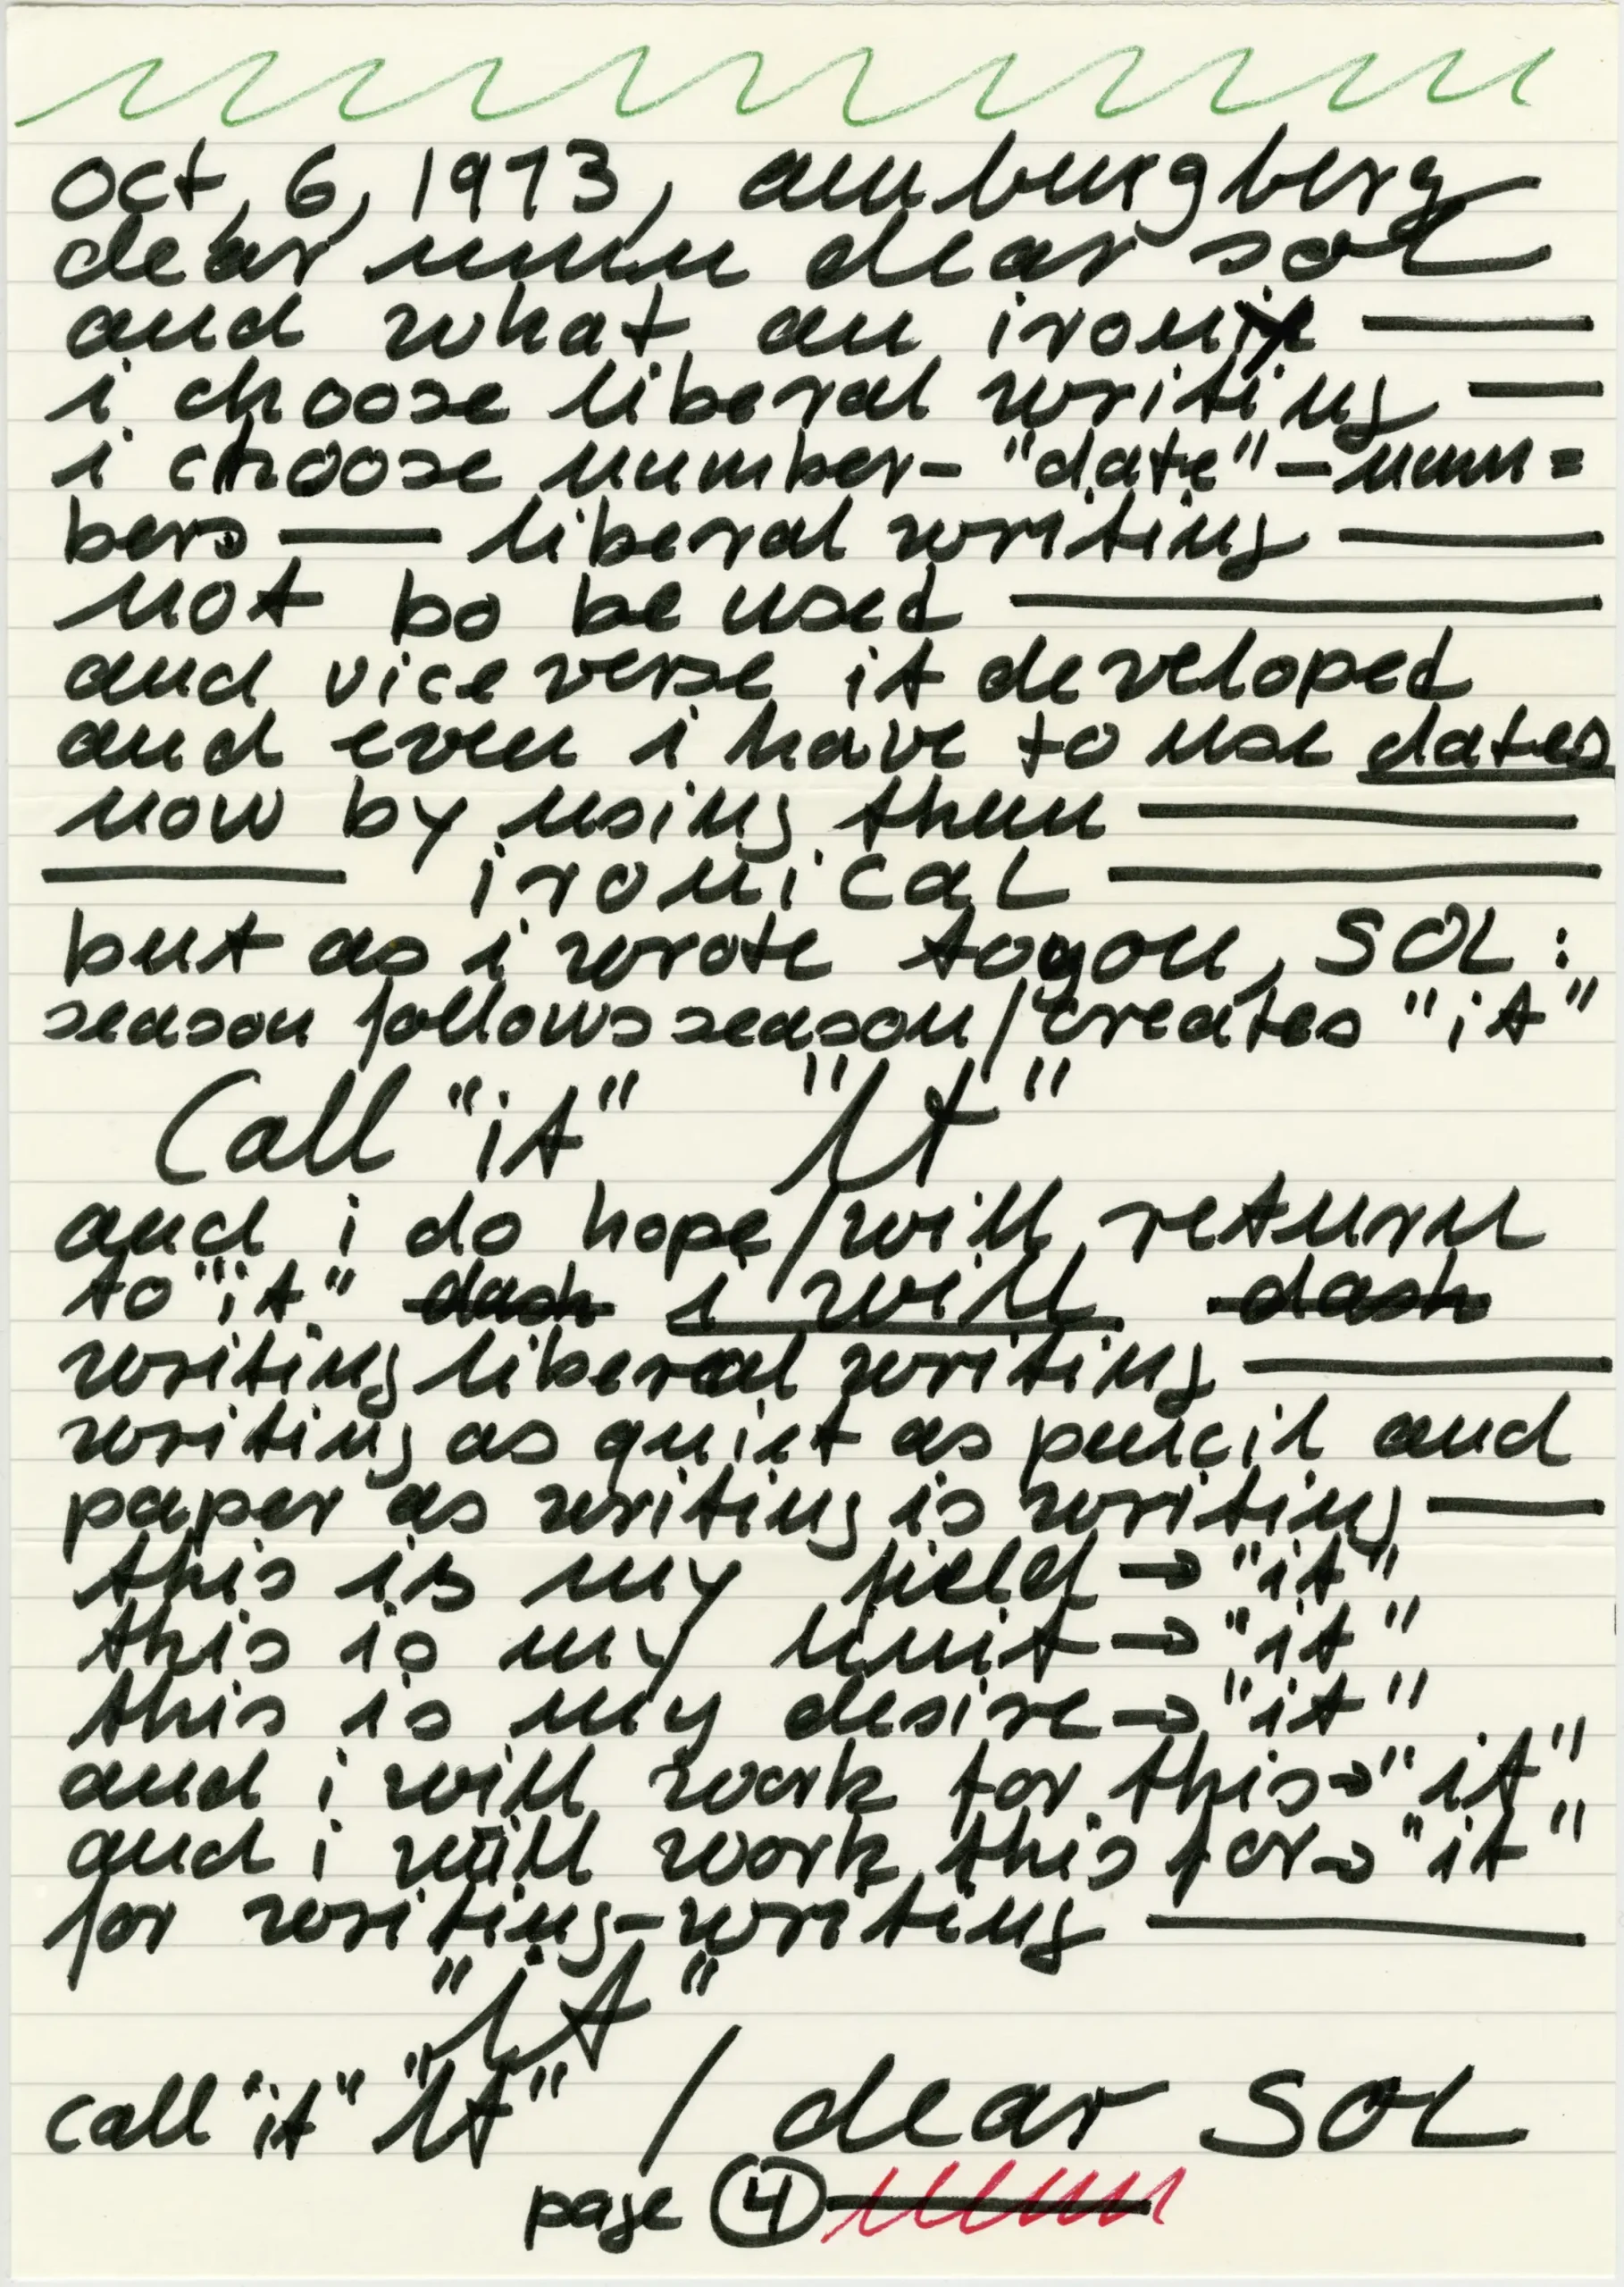 oct, 6, 1973, am burgberg
dear mmm dear sol
and what an ironie ——
i choose liberal writing —
i choose number- "date" - num=
bers —— liberal writing ——
not bo be used ————
and vice verse it developed
and even i have to use dates
now by using them ————
——— ironical ————
but as i wrote to you, SOL:
season follows season / creates "it"
Call "it" "It"
and i do hope / will return
to "it" dash i will dash
writing liberal writing ———
writing as quiet as pencil and
paper as writing is writing —
this is my field → "it"
this is my limit → "it"
this is my desire → "it"
and i will work for this → "it"
and i will work this for → "it"
for writing-writing ————
"it"
call "it" "It" / dear SOL
page 4